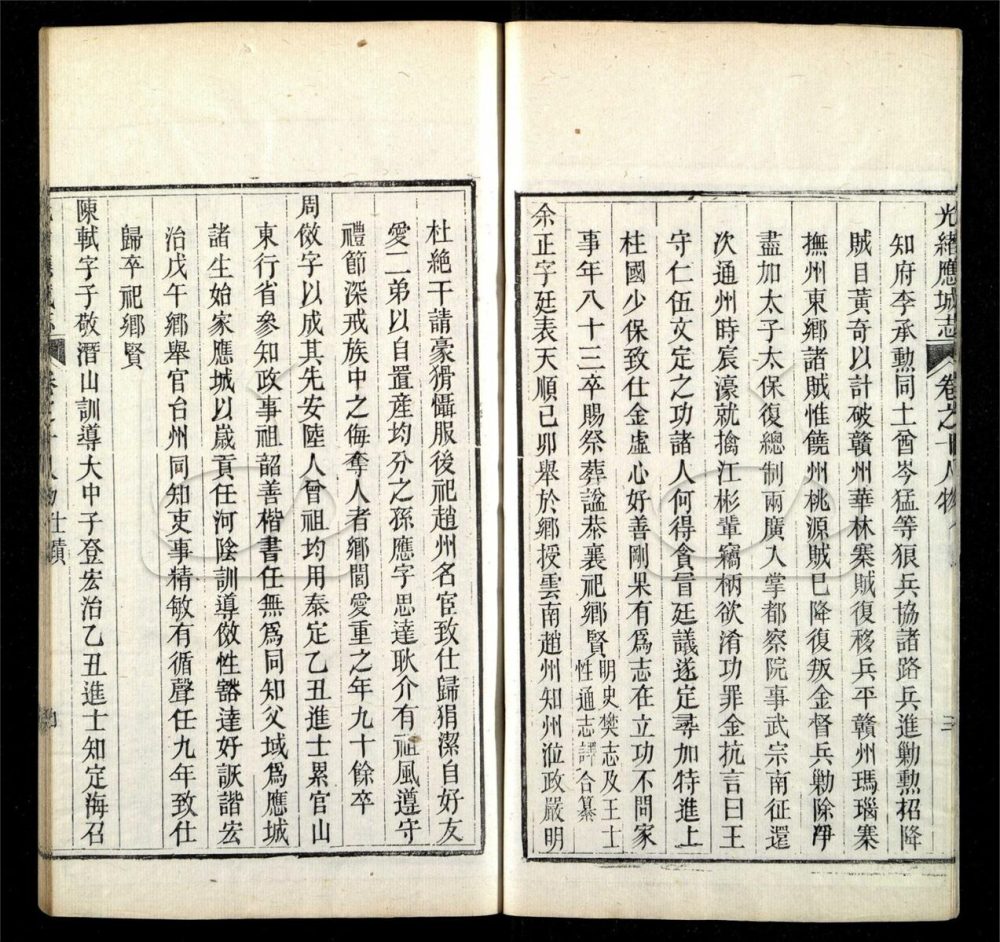 光緒應城志 卷之十 人物
知府李承勳同土酋岑猛等狼兵協諸路兵進勦勳招降
賊目黃奇以計破贛州華林寨賊復移兵平贛州瑪瑙寨
撫州東鄉諸賊惟饒州桃源賊巳降復叛金督兵勦除淨
盡加太子太保復總制兩廣入掌都察院事武宗南征還
次通州時宸濠就擒江彬輩竊柄欲淆功罪金抗言曰王
守仁伍文定之功諸人何得貪冒廷議遂定尋加特進上
柱國少保致仕金虛心好善剛果有為志在立功不問家
事年八十三卒賜祭葬諡恭襄祀鄉賢明史樊志及王士性通志譯合纂
余正字廷表天順己卯舉於鄉授雲南趙州知州涖政嚴明
杜絶干請豪猾懾服後祀趙州名宦致仕歸狷潔自好友
愛二弟以自置産均分之孫應字思達耿介有祖風遵守
禮節深戒族中之侮奪人者鄉閭愛重之年九十餘卒
周倣字以成其先安陸人曾祖均用泰定乙丑進士累官山
東行省參知政事祖韶善楷書任無爲同知父域爲應城
諸生始家應城以嵗貢任河陰訓導倣性豁達好詼諧宏
治戊午鄉舉官台州同知吏事精敏有循聲任九年致仕
歸卒祀鄉賢
陳軾字子敬潛山訓導大中子登宏治乙丑進士知定海召
人物 仕蹟